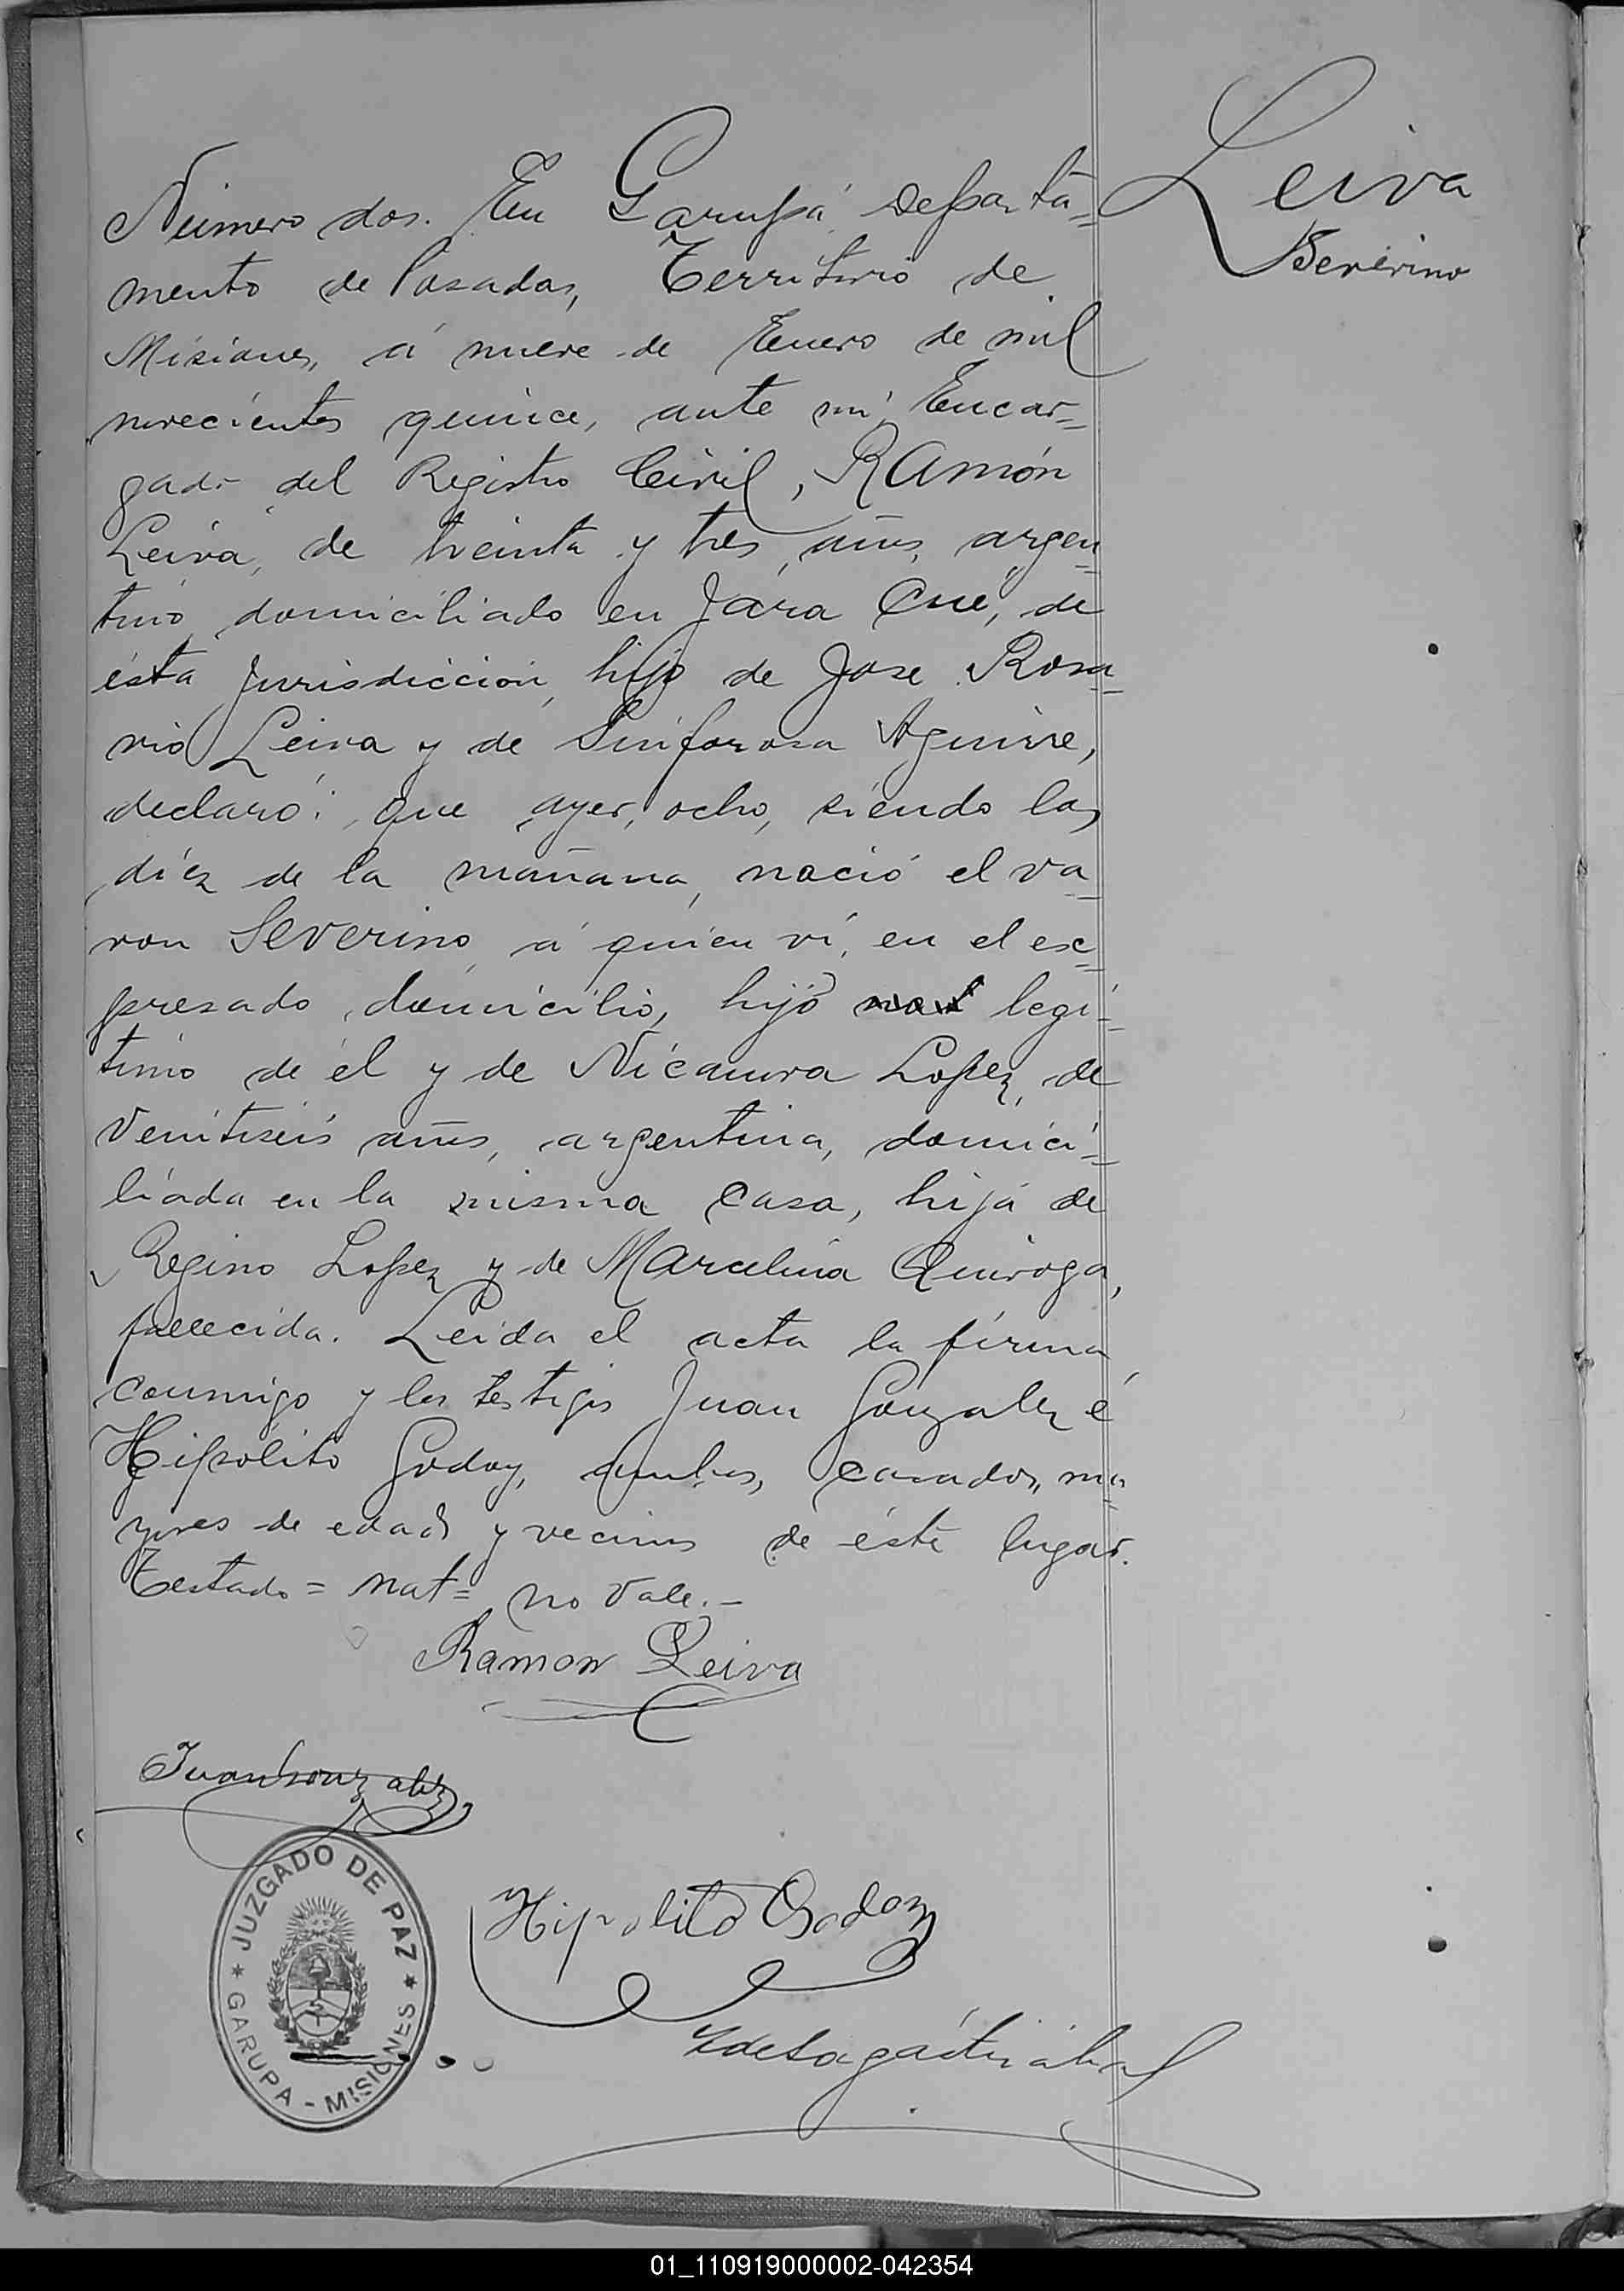 Leiva
Severino
Número dos. En Garupá, Departa=
mento de Posadas, Territorio de
Misiones, á nueve de Enero de mil
novecientos quince, ante mí, Encar=
gado del Registro Civil, Ramón
Leiva, de treinta y tres años, argen=
tino, domiciliado en Jara Cué, de
ésta jurisdicción, hijo de Jose Rosa=
rio Leiva y de Sinforosa Aguirre,
declaró: que ayer, ocho, siendo las
diez de la mañana, nació el va=
ron Severino, á quien ví, en el ex=
presado domicilio, hijo nat legi=
timo de él y de Nicanora Lopez, de
veintiseis años, argentina, domici=
liada en la misma casa, hija de
Regino Lopez y de Marcelina Quiroga,
fallecida. Leida el acta la firma
conmigo y los testigos Juan Gonzalez é
Hipólito Godoy, ambos, casados, ma=
yores de edad y vecinos de éste lugar.
Testado = nat = no vale.-
Ramon Leiva
Juan Gonzalez
Hipolito Godoy
JUZGADO DE PAZ
GARUPA - MISIONES
01_110919000002-042354